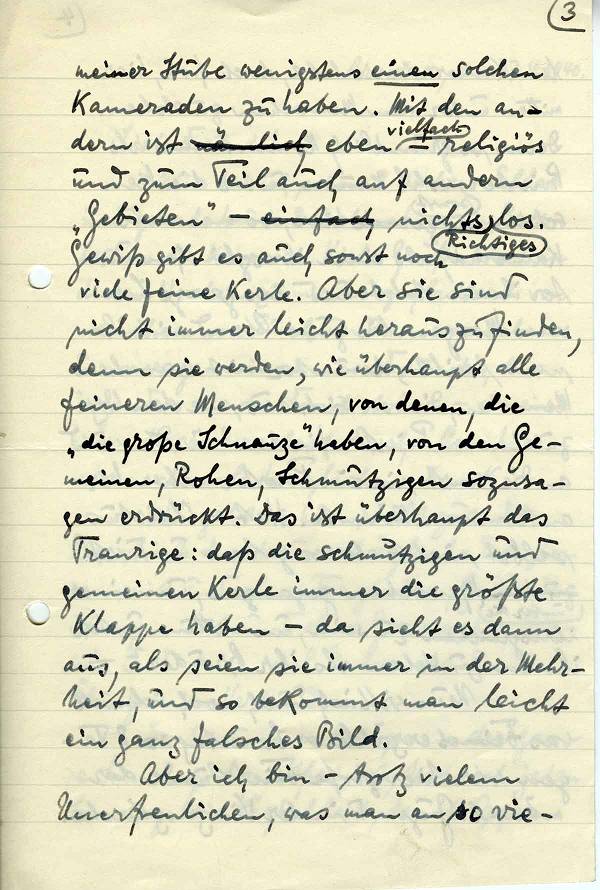 3
meiner Stube wenigstens einen solchen
Kameraden zu haben. Mit den an-
dern ist nämlich eben vielfach – religiös
und zum Teil auch auf andern
„Gebieten" – einfach nichts Richtiges los.
Gewiß gibt es auch sonst noch
viele feine Kerle. Aber sie sind
nicht immer leicht herauszufinden,
denn sie werden, wie überhaupt alle
feineren Menschen, von denen, die
„die große Schnauze" haben, von den Ge-
meinen, Rohen, Schmutzigen sozusa-
gen erdrückt. Das ist überhaupt das
Traurige: daß die schmutzigen und
gemeinen Kerle immer die größte
Klappe haben – da sieht es dann
aus, als seien sie immer in der Mehr-
heit, und so bekommt man leicht
ein ganz falsches Bild.
Aber ich bin – trotz vielem
Unerfreulichen, was man an so vie-